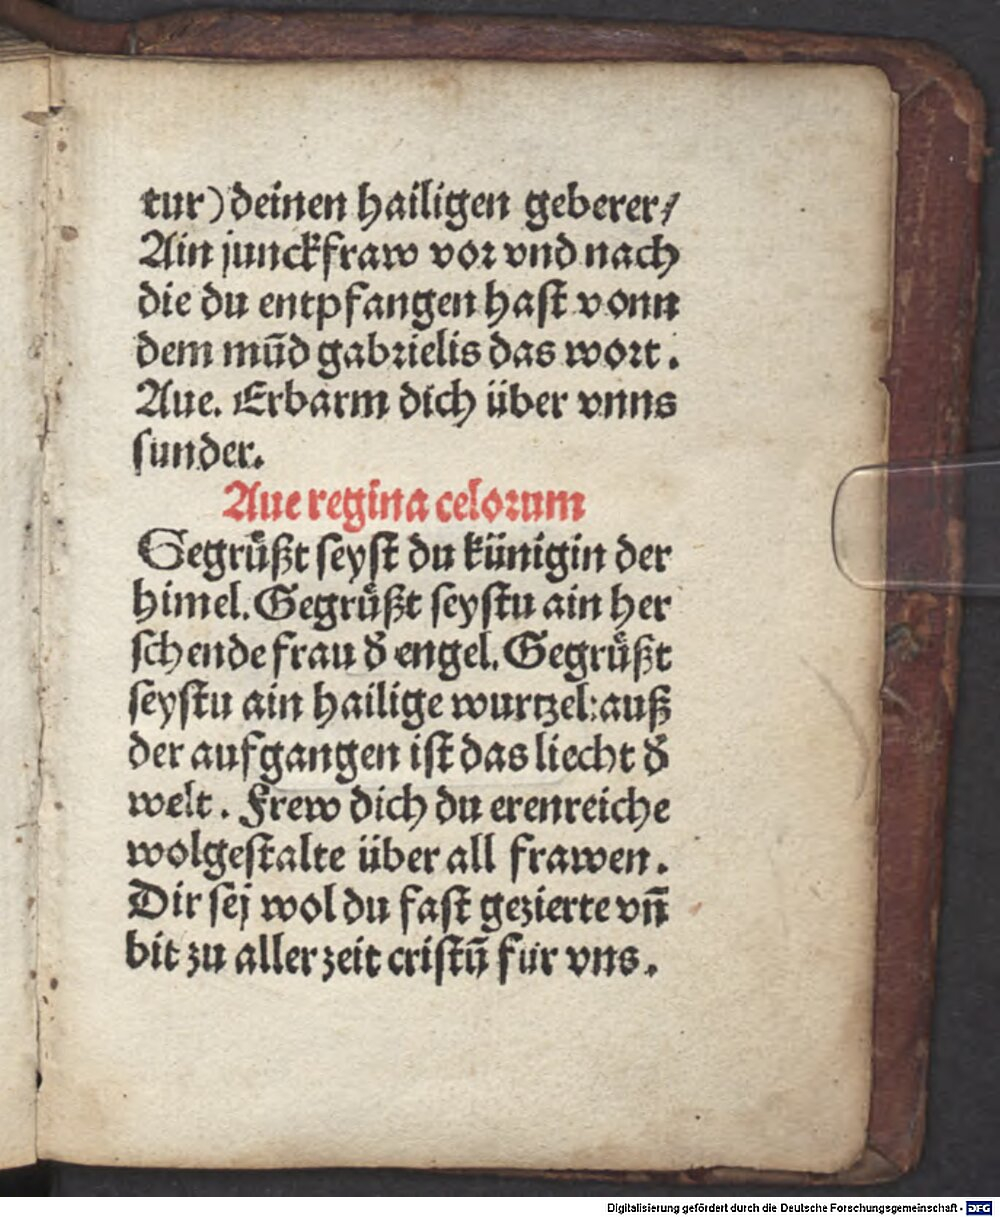 tur) deinen hailigen geberer/
Ain junckfraw vor vnd nach
die du entpfangen hast vonn
dem mūd gabrielis das wort.
Aue. Erbarm dich über vnns
sunder.
Aue regina celorum
Gegrüßt seyst du künigin der
himel. Gegrüßt seystu ain her
schende frau d̕ engel. Gegrüßt
seystu ain hailige wurtzel: auß
der aufgangen ist das liecht d̕
welt. Frew dich du erenreiche
wolgestalte über all frawen.
Dir sej wol du fast gezierte vn̄
bit zu aller zeit cristū für vns.
Digitalisierung gefördert durch die Deutsche Forschungsgemeinschaft - DFG